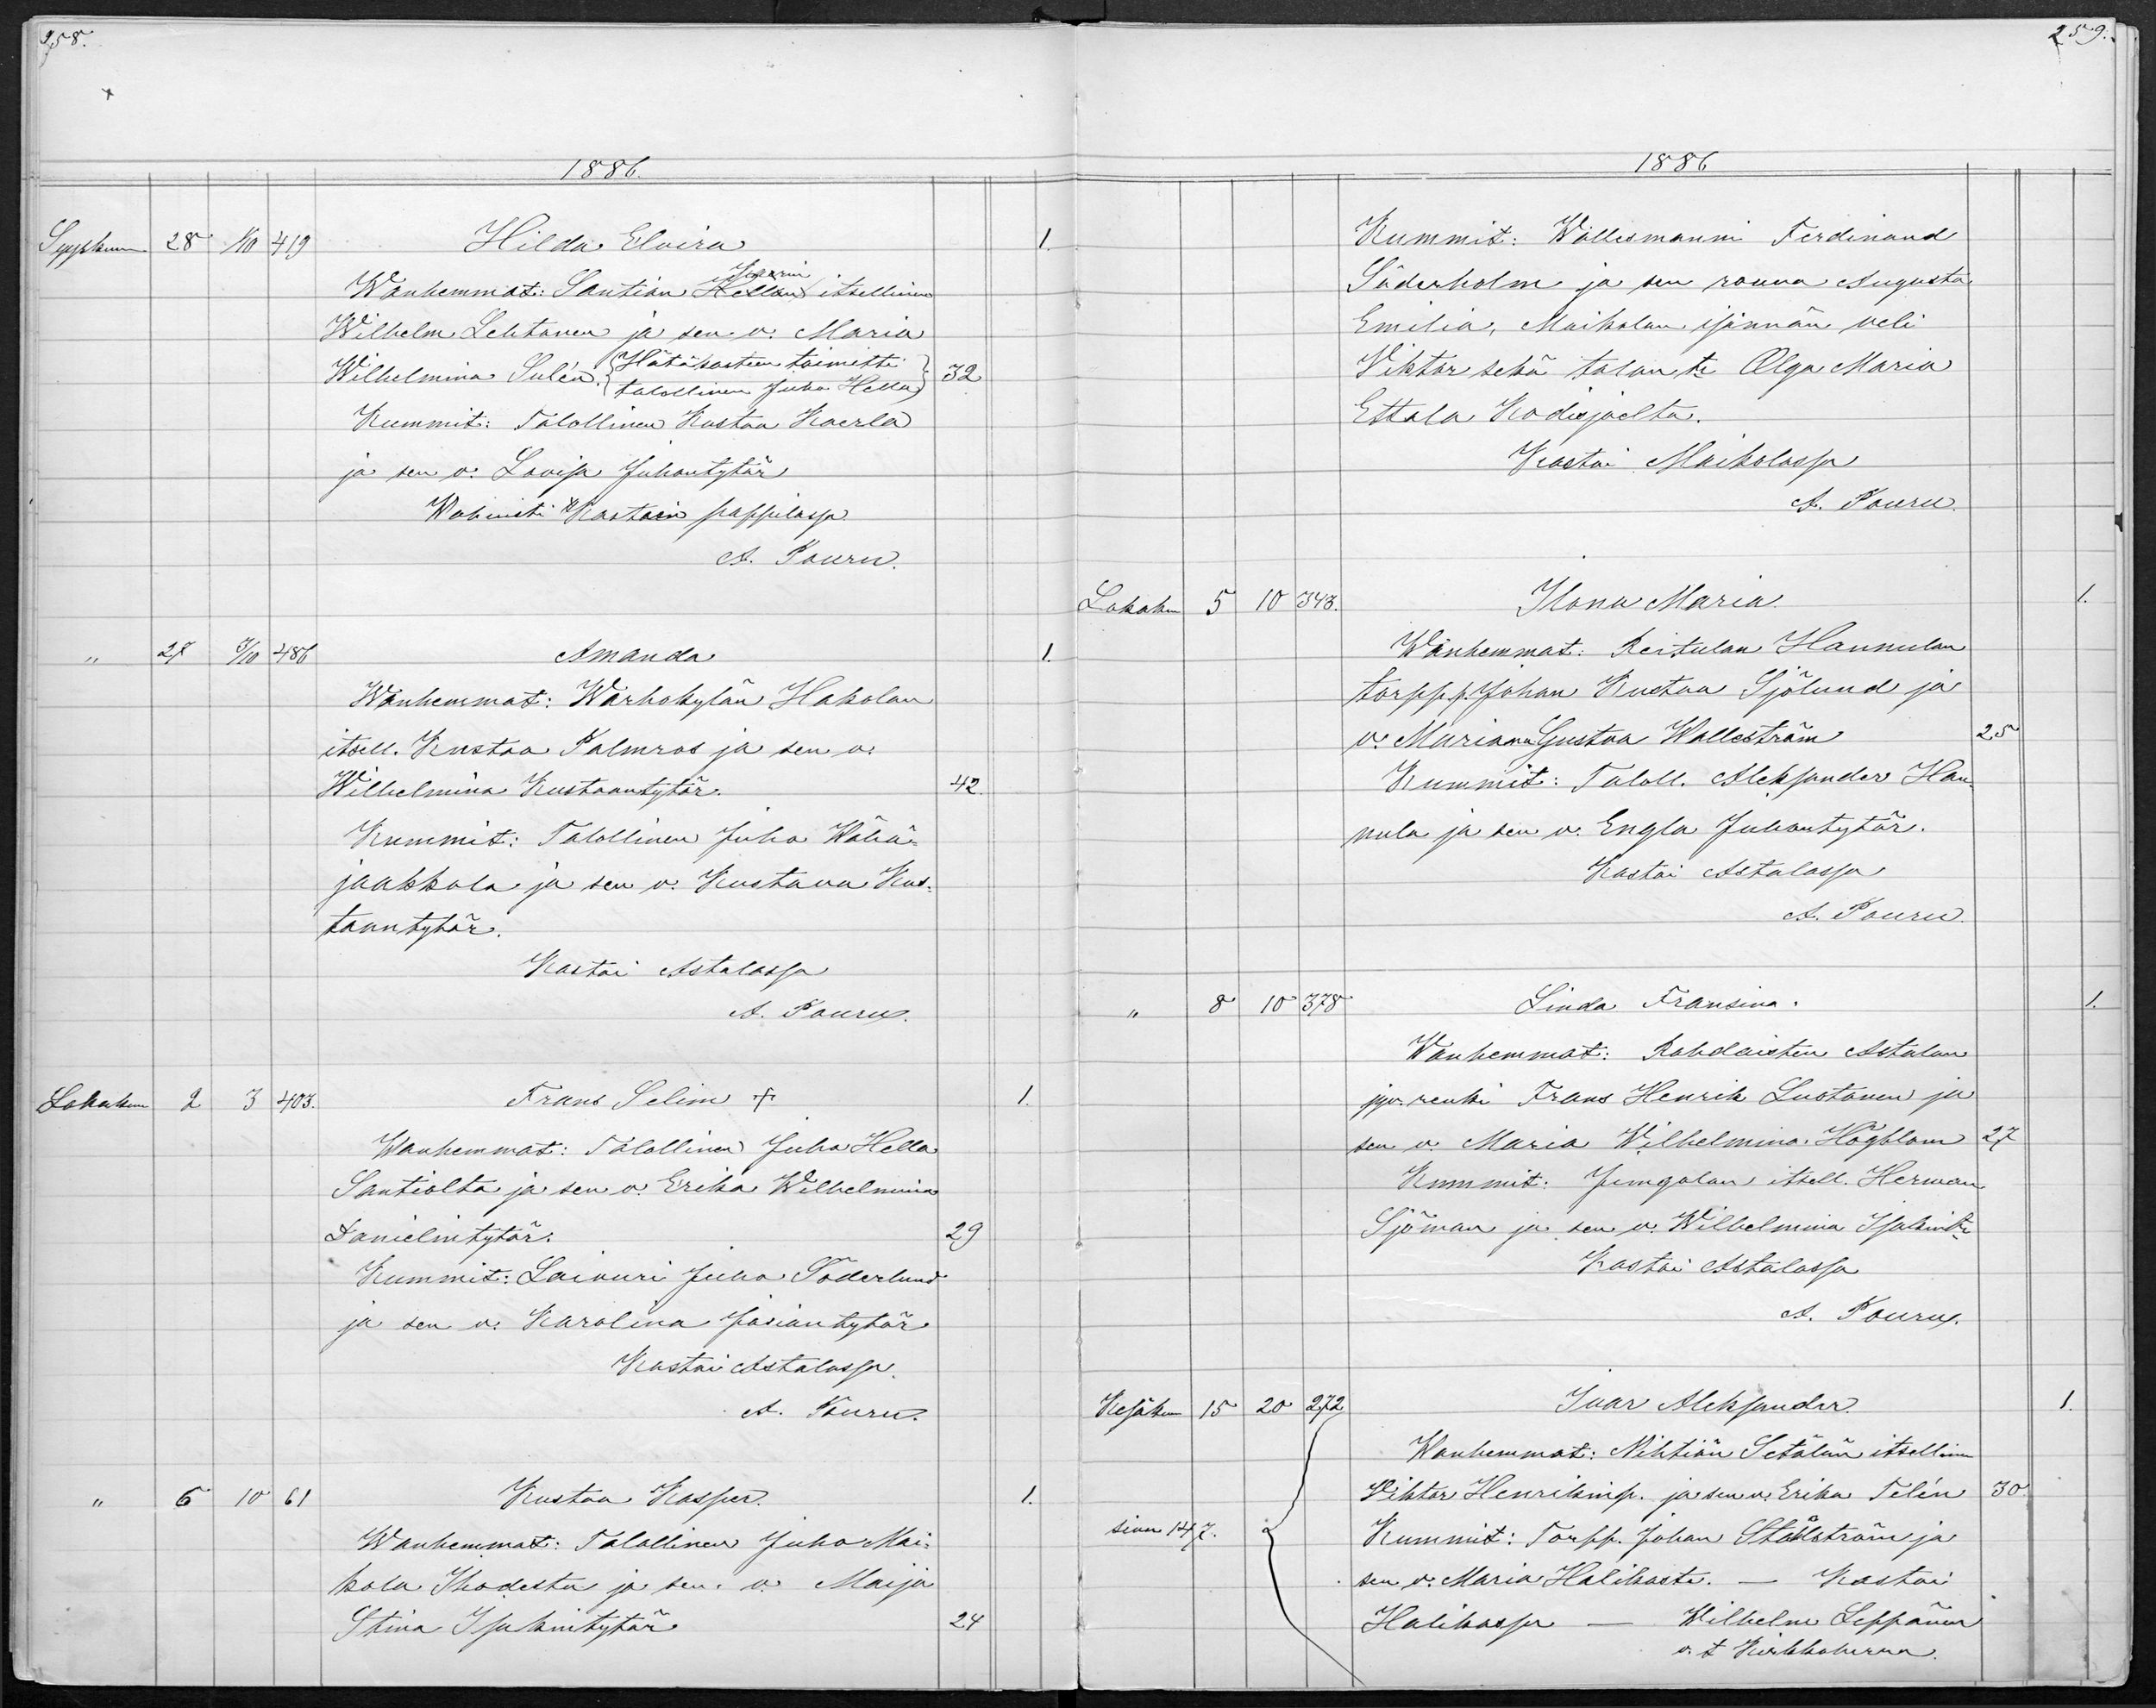 258.
1886.
Syyskuu 28 1/10 419 Hilda Elvira 1.
Wanhemmat: Santion Hellan itsellinen
Wilhelm Lehtonen ja sen v. Maria
Wilhelmina Sulén. {Hätäkasteen toimitti talollinen Juho Hella} 32
Kummit: Talollinen Kustaa Kaerla
ja sen v. Lovisa Juhontytär
Wahwisti Kasteen pappilassa
A. Pouru.
" 27 3/10 486 Amanda 1.
Wanhemmat: Warhokylän Hakolan
itsell. Kustaa Palmros ja sen v.
Wilhelmina Kustaantytär. 42.
Kummit: Talollinen Juho Wähä-
jaakkola ja sen v. Kustava Kus-
taantytär.
Kastoi Astalassa
A. Pouru.
Lokakuu 2 3 403. Frans Selim + 1.
Wanhemmat: Talollinen Juho Hella
Santiolta ja sen v. Erika Wilhelmina
Danielintytär. 29
Kummit: Laivuri Juho Söderlund
ja sen v. Karolina Josiantytär
Kastoi Astalassa.
A. Pouru.
" 6 10 61 Kustaa Kasper. 1.
Wanhemmat: Talollinen Juho Mai-
kola Ihodesta ja sen v. Maija
Stina Isakintytär 24
259.
1886
Kummit: Wallesmanni Ferdinand
Söderholm ja sen rouva Augusta
Emilia, Maikolan isännän veli
Viktor sekä talon tr Olga Maria
Ettala Kodisjoelta.
Kastoi Maikolassa
A. Pouru.
Lokakuu 5 10 343. Ilona Maria. 1.
Wanhemmat: Reitulan Hannulan
torpp.p. Johan Kustaa Sjölund ja
v. Mariana Gustva Walleström 25
Kummit: Taloll. Aleksander Han-
nula ja sen v. Engla Juhontytär.
Kastoi Astalassa
A. Pouru.
" 8 10 378 Linda Fransina. 1.
Wanhemmat: Kohdaisten Astalan
jyv. renki Frans Henrik Lustonen ja
sen v. Maria Wilhelmina Högblom 27
Kummit: Jungolan itsell. Herman
Sjöman ja sen v. Wilhelmina Isakintr
Kastoi Astalassa
A. Pouru.
Kesäkuu 15 20 272 Ivar Aleksander. 1.
Wanhemmat: Nihtiön Setälän itsellinen
Viktor Henrikinp. ja sen v. Erika Telén 30
sivu 147. Kummit: Torpp. Johan Stålström ja
sen v. Maria Halikosta. — Kastoi
Halikossa — Wilhelm Leppänen
v. t. Kirkkoherra.